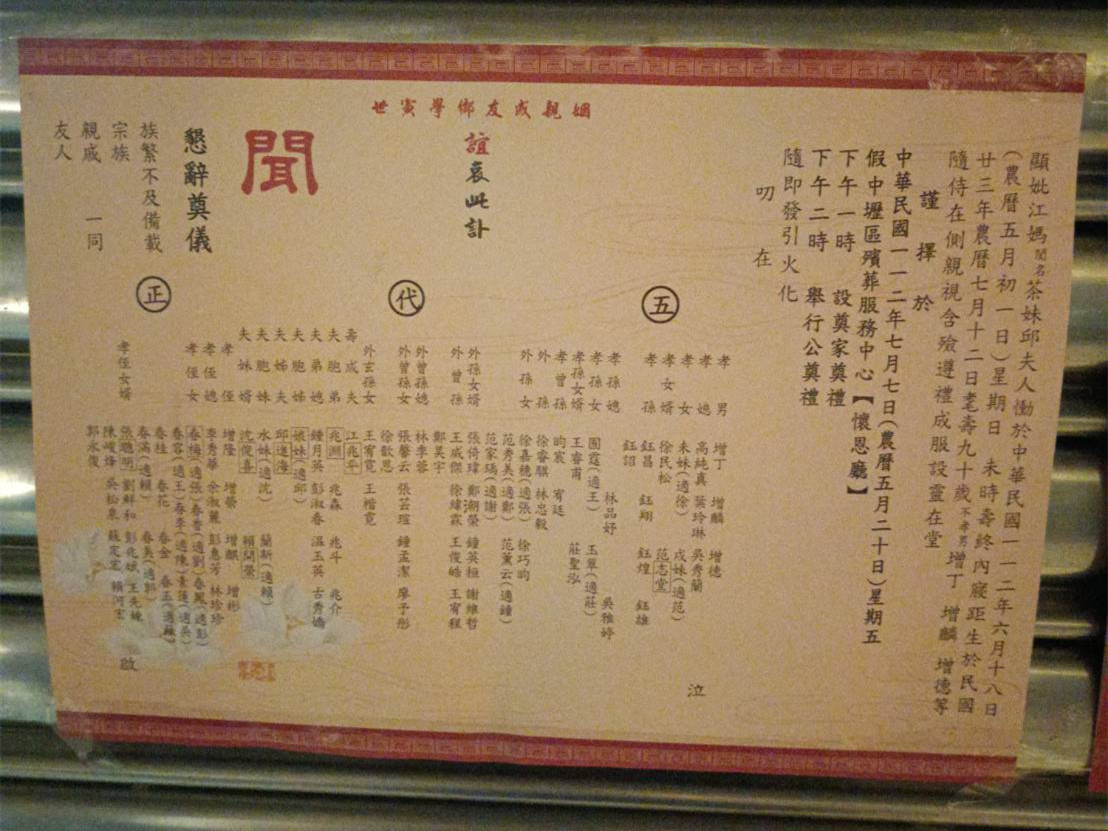 顯妣江媽閨名茶妹邱夫人慟於中華民國一一二年六月十八日
(農曆五月初一日)星期日　未時壽終內寢距生於民國
廿三年農曆七月十二日耄壽九十歲不孝男增丁　增麟　增德等
隨侍在側親視含殮遵禮成服設靈在堂
謹擇於
中華民國一一二年七月七日(農曆五月二十日)星期五
假中壢區殯葬服務中心【懷恩廳】
下午一時　設奠家奠禮
下午二時　舉行公奠禮
隨即發引火化
叨在
姻親戚友鄉學寅世
誼哀此訃
聞
懇辭奠儀
族繁不及備載
宗族
親戚　一同
友人
五
代
正
孝男　增丁　增麟　增德
孝媳　高純真　葉玲琳　吳秀蘭
孝女　未妹(適徐)　戊妹(適范)
孝女婿　徐民松　范志堂
孝孫　鈺昌　鈺翔　鈺煌　鈺雄
鈺詔
孝孫媳　林品妤　吳雅婷
孝孫女　團霞(適王)　玉單(適莊)
孝孫女婿　王睿甫　莊聖泓
孝曾孫　昀宸　宥廷
外孫　徐睿騏　林忠毅
外孫女　徐嘉穗(適張)　徐巧昀
范秀美(適鄭)　范薰云(適鍾)
范家瑀(適謝)
外孫女婿　張倚瑋　鄭潮榮　鍾英桓　謝維哲
外曾孫　王威傑　徐煒霖　王俊皓　王宥程
鄭昊宇
外曾孫媳　林李蓉
外曾孫女　張馨云　張芸瑄　鍾孟潔　廖予彤
徐歆恩
外玄孫女　王宥霓　王楷霓
壽成夫　江兆平
夫胞弟　兆淵　兆森　兆斗　兆介
夫弟媳　鍾月英　彭淑春　溫玉英　古秀嬌
夫胞姊　娘妹(適邱)
夫姊夫　邱進海
夫胞妹　水妹(適沈)　蘭新(適賴)
夫妹婿　沈俊喜　賴開鶯
孝侄　增隆　增榮　增麒　增彬
孝侄媳　李秀華　余淑麗　彭惠芳　林珍珍
孝侄女　春梅(適張)　春香(適劉)　春鳳(適彭)
春容(適王)　春李(適陳)　素蓮(適吳)
春桂　春花　春金　春玉(適蘇)
春滿(適賴)　春美(適郭)
孝侄女婿　張聰明　劉鮮和　彭兆斌　王先婢
陳峻烽　吳松泉　蘇定宏　賴河宏
郭永俊
泣
啟